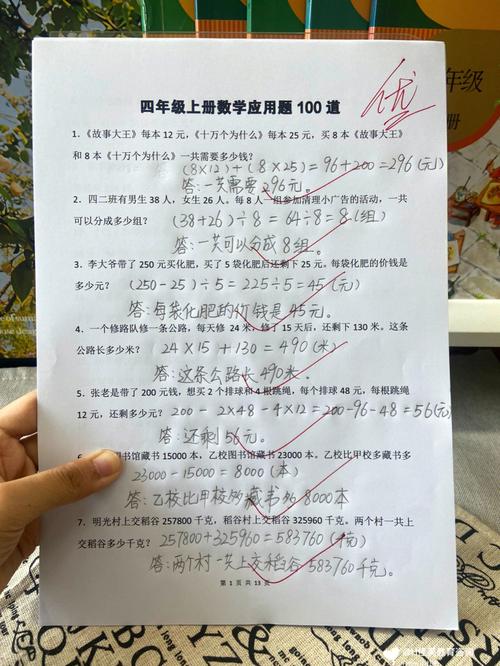 优
年级
册
四年级上册数学应用题 100 道
1.《故事大王》每本 12 元,《十万个为什么》每本 25 元,买 8 本《故事大王》
和 8 本《十万个为什么》一共需要多少钱?
(8×12)+(8×25)=96+200=296(元)
答:一共需要296元。
2. 四二班有男生 38 人,女生 26 人。每 8 人一组参加清理小广告的活动,一共
可以分成多少组? (38+26)÷8=64÷8=8(组)
答:一共可以分成8组。
3. 李大爷带了 250 元买化肥,买了 5 袋化肥后还剩下 25 元。每袋化肥的价钱是
多少元? (250-25)÷5=225÷5=45(元)
答:每袋化肥的价钱是45元。
4. 一个修路队修一条公路,每天修 24 米,修了 15 天后,还剩下 130 米。这条
公路长多少米? 24×15+130=490(米)
答:这条公路长490米。
5. 张老是带了 200 元钱,想买 2 个排球和 4 根跳绳,每个排球 48 元,每根跳绳
12 元,还剩多少元? 200-2×48-4×12=200-96-48=56(元)
答:还剩56元。
6 图书馆藏书 15000 本,乙校图书馆藏书 23000 本。乙校比甲校多藏书多
23000-15000=8000(本)
答:乙校比甲校多藏书 8000本
7. 明光村上交稻谷 257800 千克,稻谷村上交稻谷 325960 千克。两个村一共上
交稻谷多少千克? 257800+325960=583760(千克)
答:两个村一共上交稻谷583760千克。
第 1 页 共 13 页